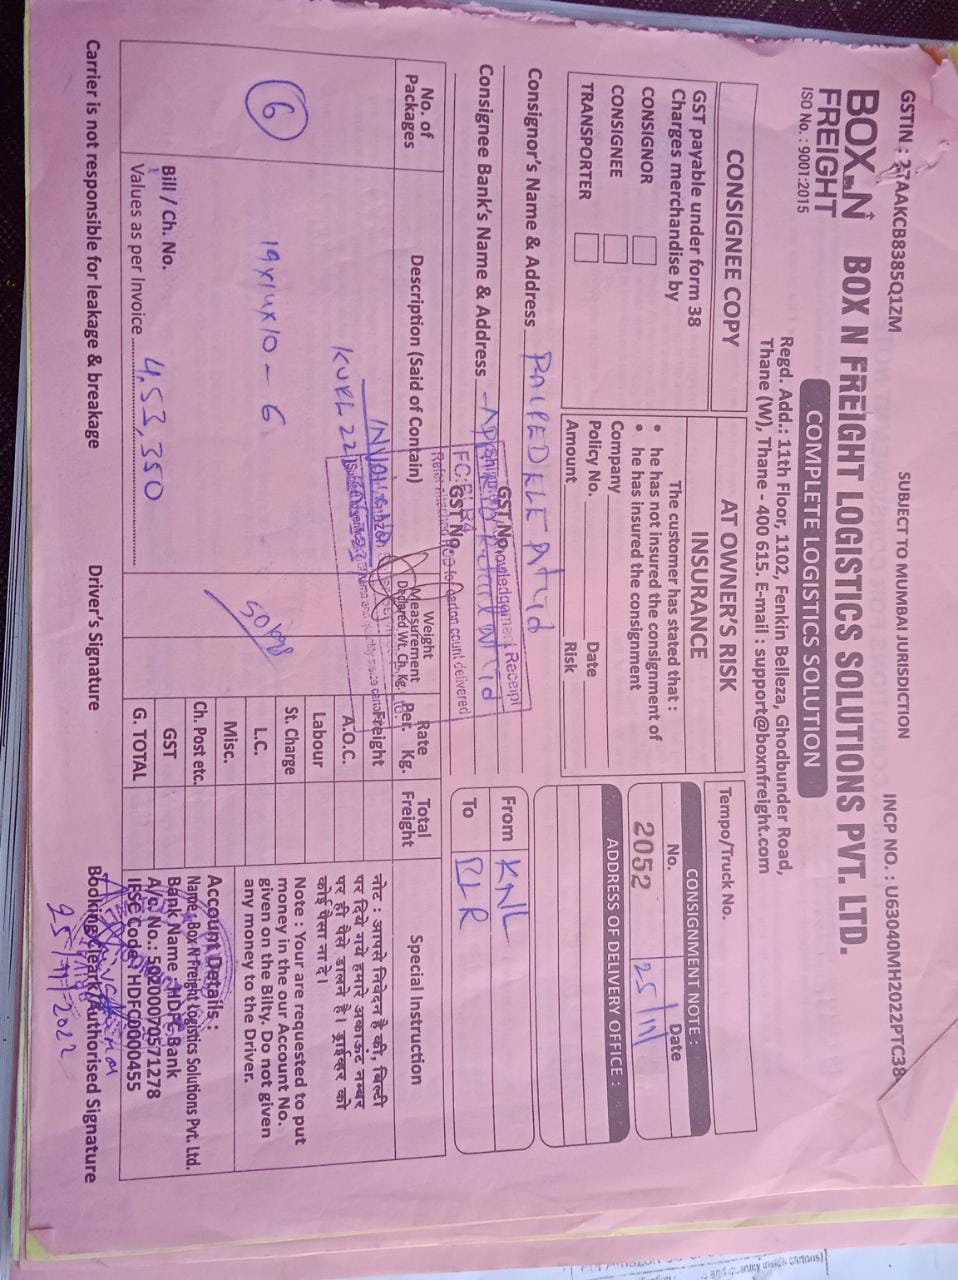 GSTIN : 27AAKCB8385Q1ZM
SUBJECT TO MUMBAI JURISDICTION
INCP NO. : U63040MH2022PTC38
BOX N
FREIGHT
ISO No. : 9001:2015
BOX N FREIGHT LOGISTICS SOLUTIONS PVT. LTD.
COMPLETE LOGISTICS SOLUTION
Regd. Add.: 11th Floor, 1102, Fenkin Belleza, Ghodbunder Road,
Thane (W), Thane - 400 615. E-mail : support@boxnfreight.com
CONSIGNEE COPY
GST payable under form 38
Charges merchandise by
CONSIGNOR
CONSIGNEE
TRANSPORTER
AT OWNER'S RISK
INSURANCE
The customer has stated that :
• he has not insured the consignment of
• he has insured the consignment
Company
Policy No. Date
Amount Risk
Tempo/Truck No.
CONSIGNMENT NOTE :
No. Date
2052 25/11/
ADDRESS OF DELIVERY OFFICE :
Consignor's Name & Address
GST No.
Consignee Bank's Name & Address
GST No.
Receipt
carton count delivered
From KNL
To BLR
No. of Packages
Description (Said of Contain)
Weight Measurement
Declared Wt. Ch. Kg.
Rate Per. Kg.
Total Freight
Special Instruction
KURL22
6
19x14x10 - 6
50 kgs
Bill / Ch. No.
Values as per Invoice 4,53,350
Freight
A.O.C.
Labour
St. Charge
L.C.
Misc.
Ch. Post etc.
GST
G. TOTAL
नोट : आपसे निवेदन है की, बिल्टी
पर दिये गये हमारे अकाऊंट नम्बर
पर ही पैसे डालने है। ड्राईव्हर को
कोई पैसा ना दे।
Note : Your are requested to put
money in the our Account No.
given on the Bilty. Do not given
any money to the Driver.
Account Details :
Name : Box N Freight Logistics Solutions Pvt. Ltd.
Bank Name : HDFC Bank
A/c. No.: 50200070571278
IFSC Code : HDFC0000455
Carrier is not responsible for leakage & breakage
Driver's Signature
Booking Cleark/Authorised Signature
25/11/2022